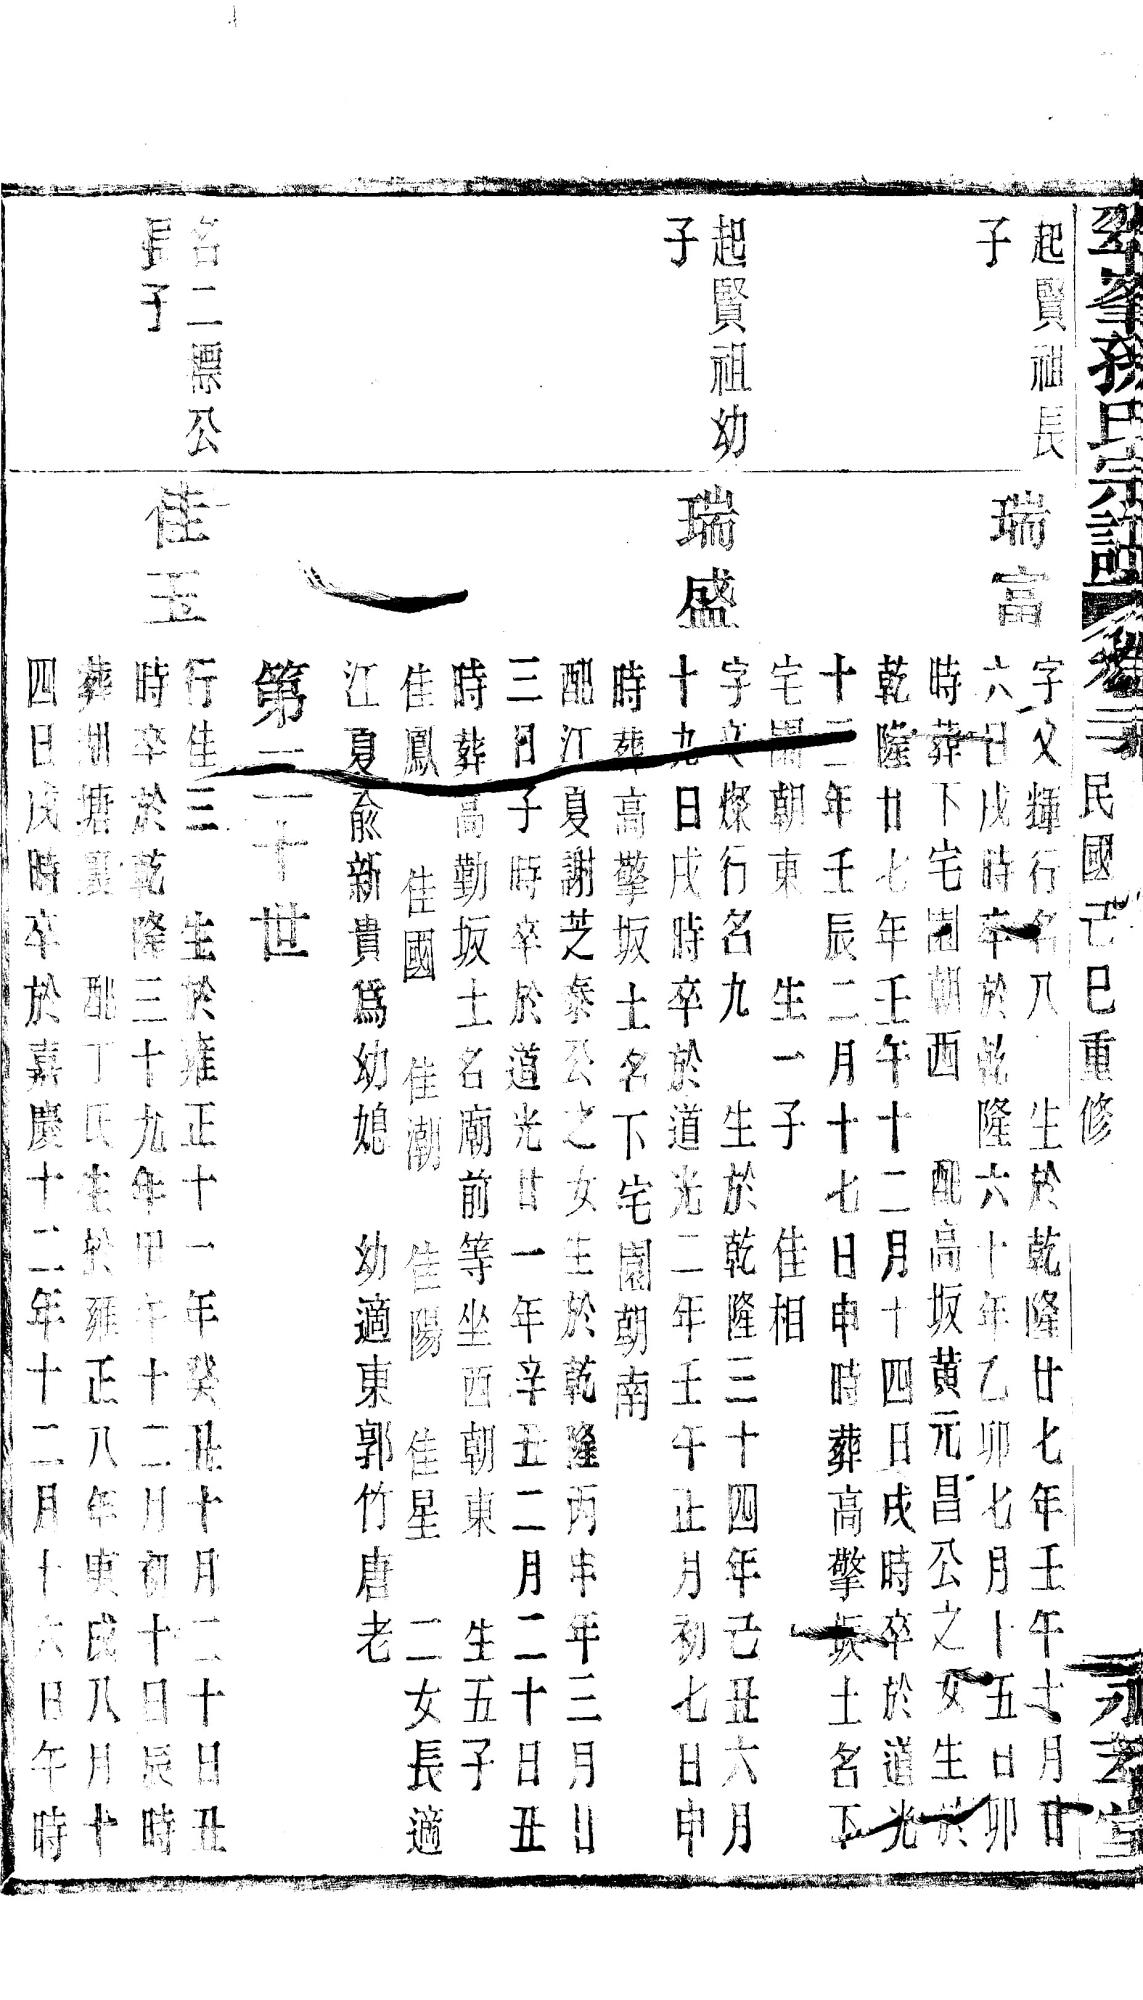 孫氏宗譜 卷二 民國己巳重修
起賢祖長
子
瑞富
字文輝行名八 生於乾隆廿七年壬午七月廿
六日戌時卒於乾隆六十年乙卯七月十五日卯
時葬下宅園朝西 配高坂黃元昌公之女生於
乾隆廿七年壬午十二月十四日戌時卒於道光
十二年壬辰二月十七日申時葬高擎坂土名下
宅園朝東 生一子 佳相
起賢祖幼
子
瑞盛
字文燦行名九 生於乾隆三十四年己丑六月
十九日戌時卒於道光二年壬午正月初七日申
時葬高擎坂土名下宅園朝南
配江夏謝芝泰公之女生於乾隆丙申年三月廿
三日子時卒於道光廿一年辛丑二月二十日丑
時葬高勤坂土名廟前等坐西朝東 生五子
佳鳳 佳國 佳潮 佳陽 佳星 二女長適
江夏俞新貴爲幼媳 幼適東郭竹唐老
第二十世
名二標公
長子
佳玉
行佳三 生於雍正十一年癸丑十月二十日丑
時卒於乾隆三十九年甲午十二月初十日辰時
葬湖塘裏 配丁氏生於雍正八年庚戌八月十
四日戌時卒於嘉慶十二年十二月十六日午時